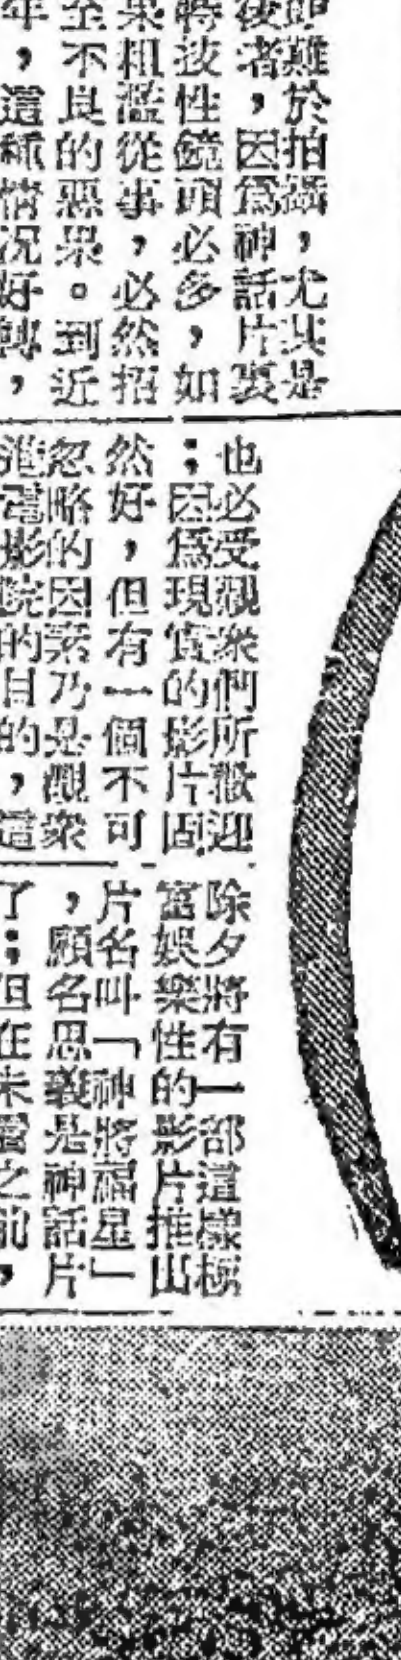 即難於拍攝，尤其是
後者，因爲神話片裏
特技性鏡頭必多，如
果粗濫從事，必然招
至不良的惡果。到近
年，這種情况好轉，
也必受觀衆們所歡迎
；因爲現實的影片固
然好，但有一個不可
忽略的因素乃是觀衆
進電影院的目的，這
除夕將有一部這樣極
富娛樂性的影片推出
片名叫「神將福星」
，顧名思義是神話片
了；但在未看之前，